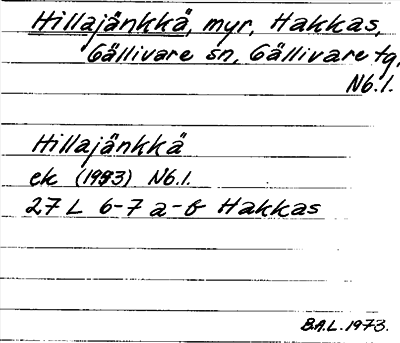 Hillajänkkä, myr, Hakkas,
Gällivare sn, Gällivare tg,
Nb.l.
Hillajänkkä
ek (1993) Nb.l.
27 L 6-7 a-b Hakkas
B.A.L. 1973.